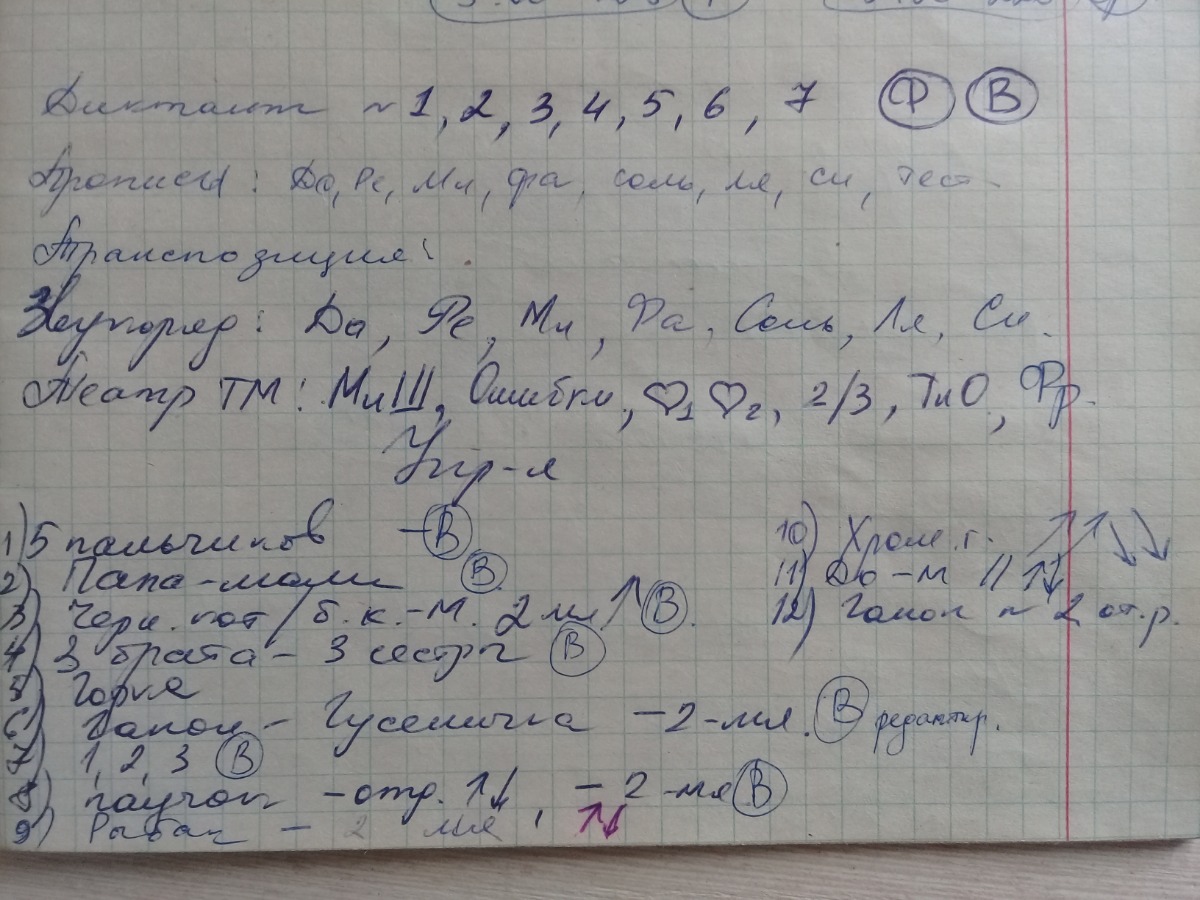 Диктант ~ 1, 2, 3, 4, 5, 6, 7 Ф В
Прописи: До, Ре, Ми, фа, соль, ля, си, тест
Транспозиция:
Звукоряд: До, Ре, Ми, Фа, Соль, Ля, Си.
Театр ТМ: МиШ, Ошибки, ♡1 ♡2, 2/3, ТиО, Фр.
Упр-я
1) 5 пальчиков – В
2) Папа-мама В
3) Черн. кот / б.к.-М. 2 мя ↑ В
4) 3 брата – 3 сестры В
5) Горка
6) Канон – Гусеничка – 2-мя. В редактир.
7) 1, 2, 3 В
8) паучок – отр. ↑↓, – 2-мя В
9) Рыбак – 2 мя, ↑↓
10) Хром. г. ↗↗↘↘
11) До-м // ↑↓
12) Гамок ~ 2 от.р.